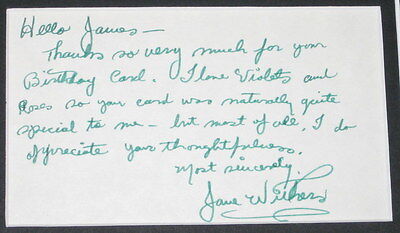 Hello James —
Thanks so very much for your
Birthday Card. I love Violets and
Roses so your card was naturally quite
special to me — but most of all, I do
appreciate your thoughtfulness.
Most sincerely,
Jane Withers